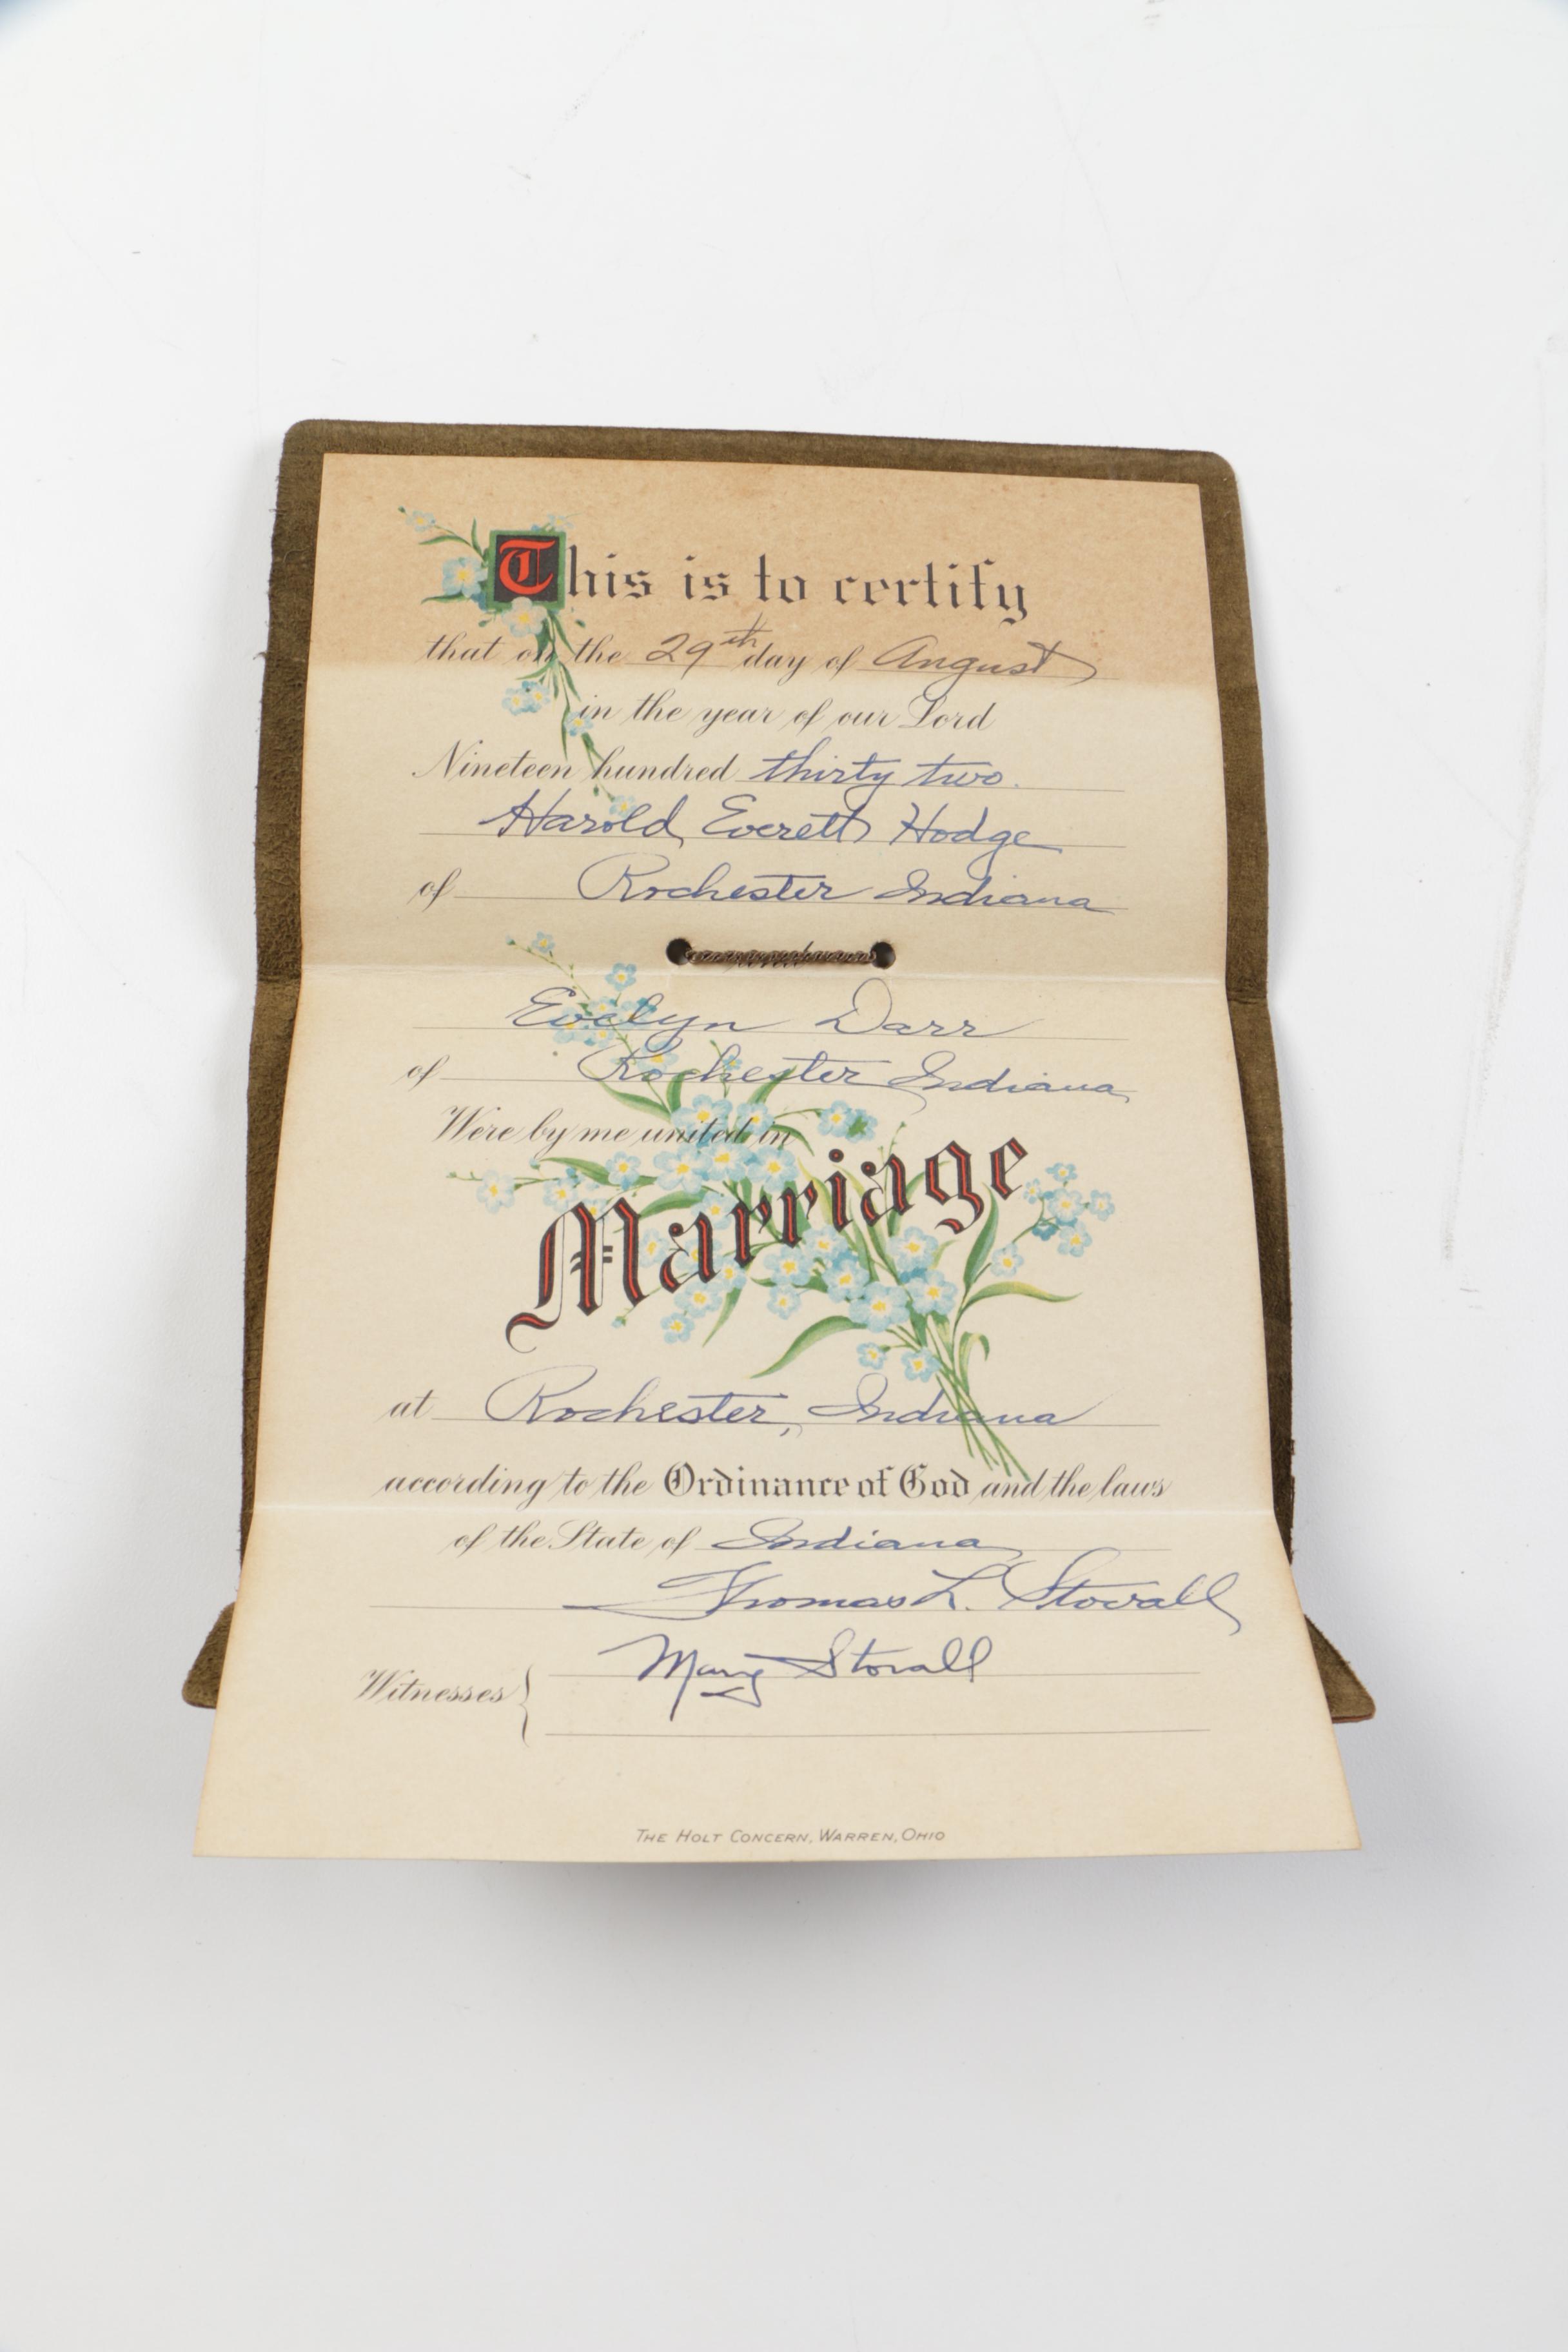 This is to certify
that on the 29th day of August
in the year of our Lord
Nineteen hundred thirty two.
Harold Everett Hodge
of Rochester Indiana
Evelyn Darr
of Rochester Indiana
Were by me united in
Marriage
at Rochester, Indiana
according to the Ordinance of God and the laws
of the State of Indiana
Thomas L. Stovall
Witnesses Mary Stovall
THE HOLT CONCERN, WARREN, OHIO